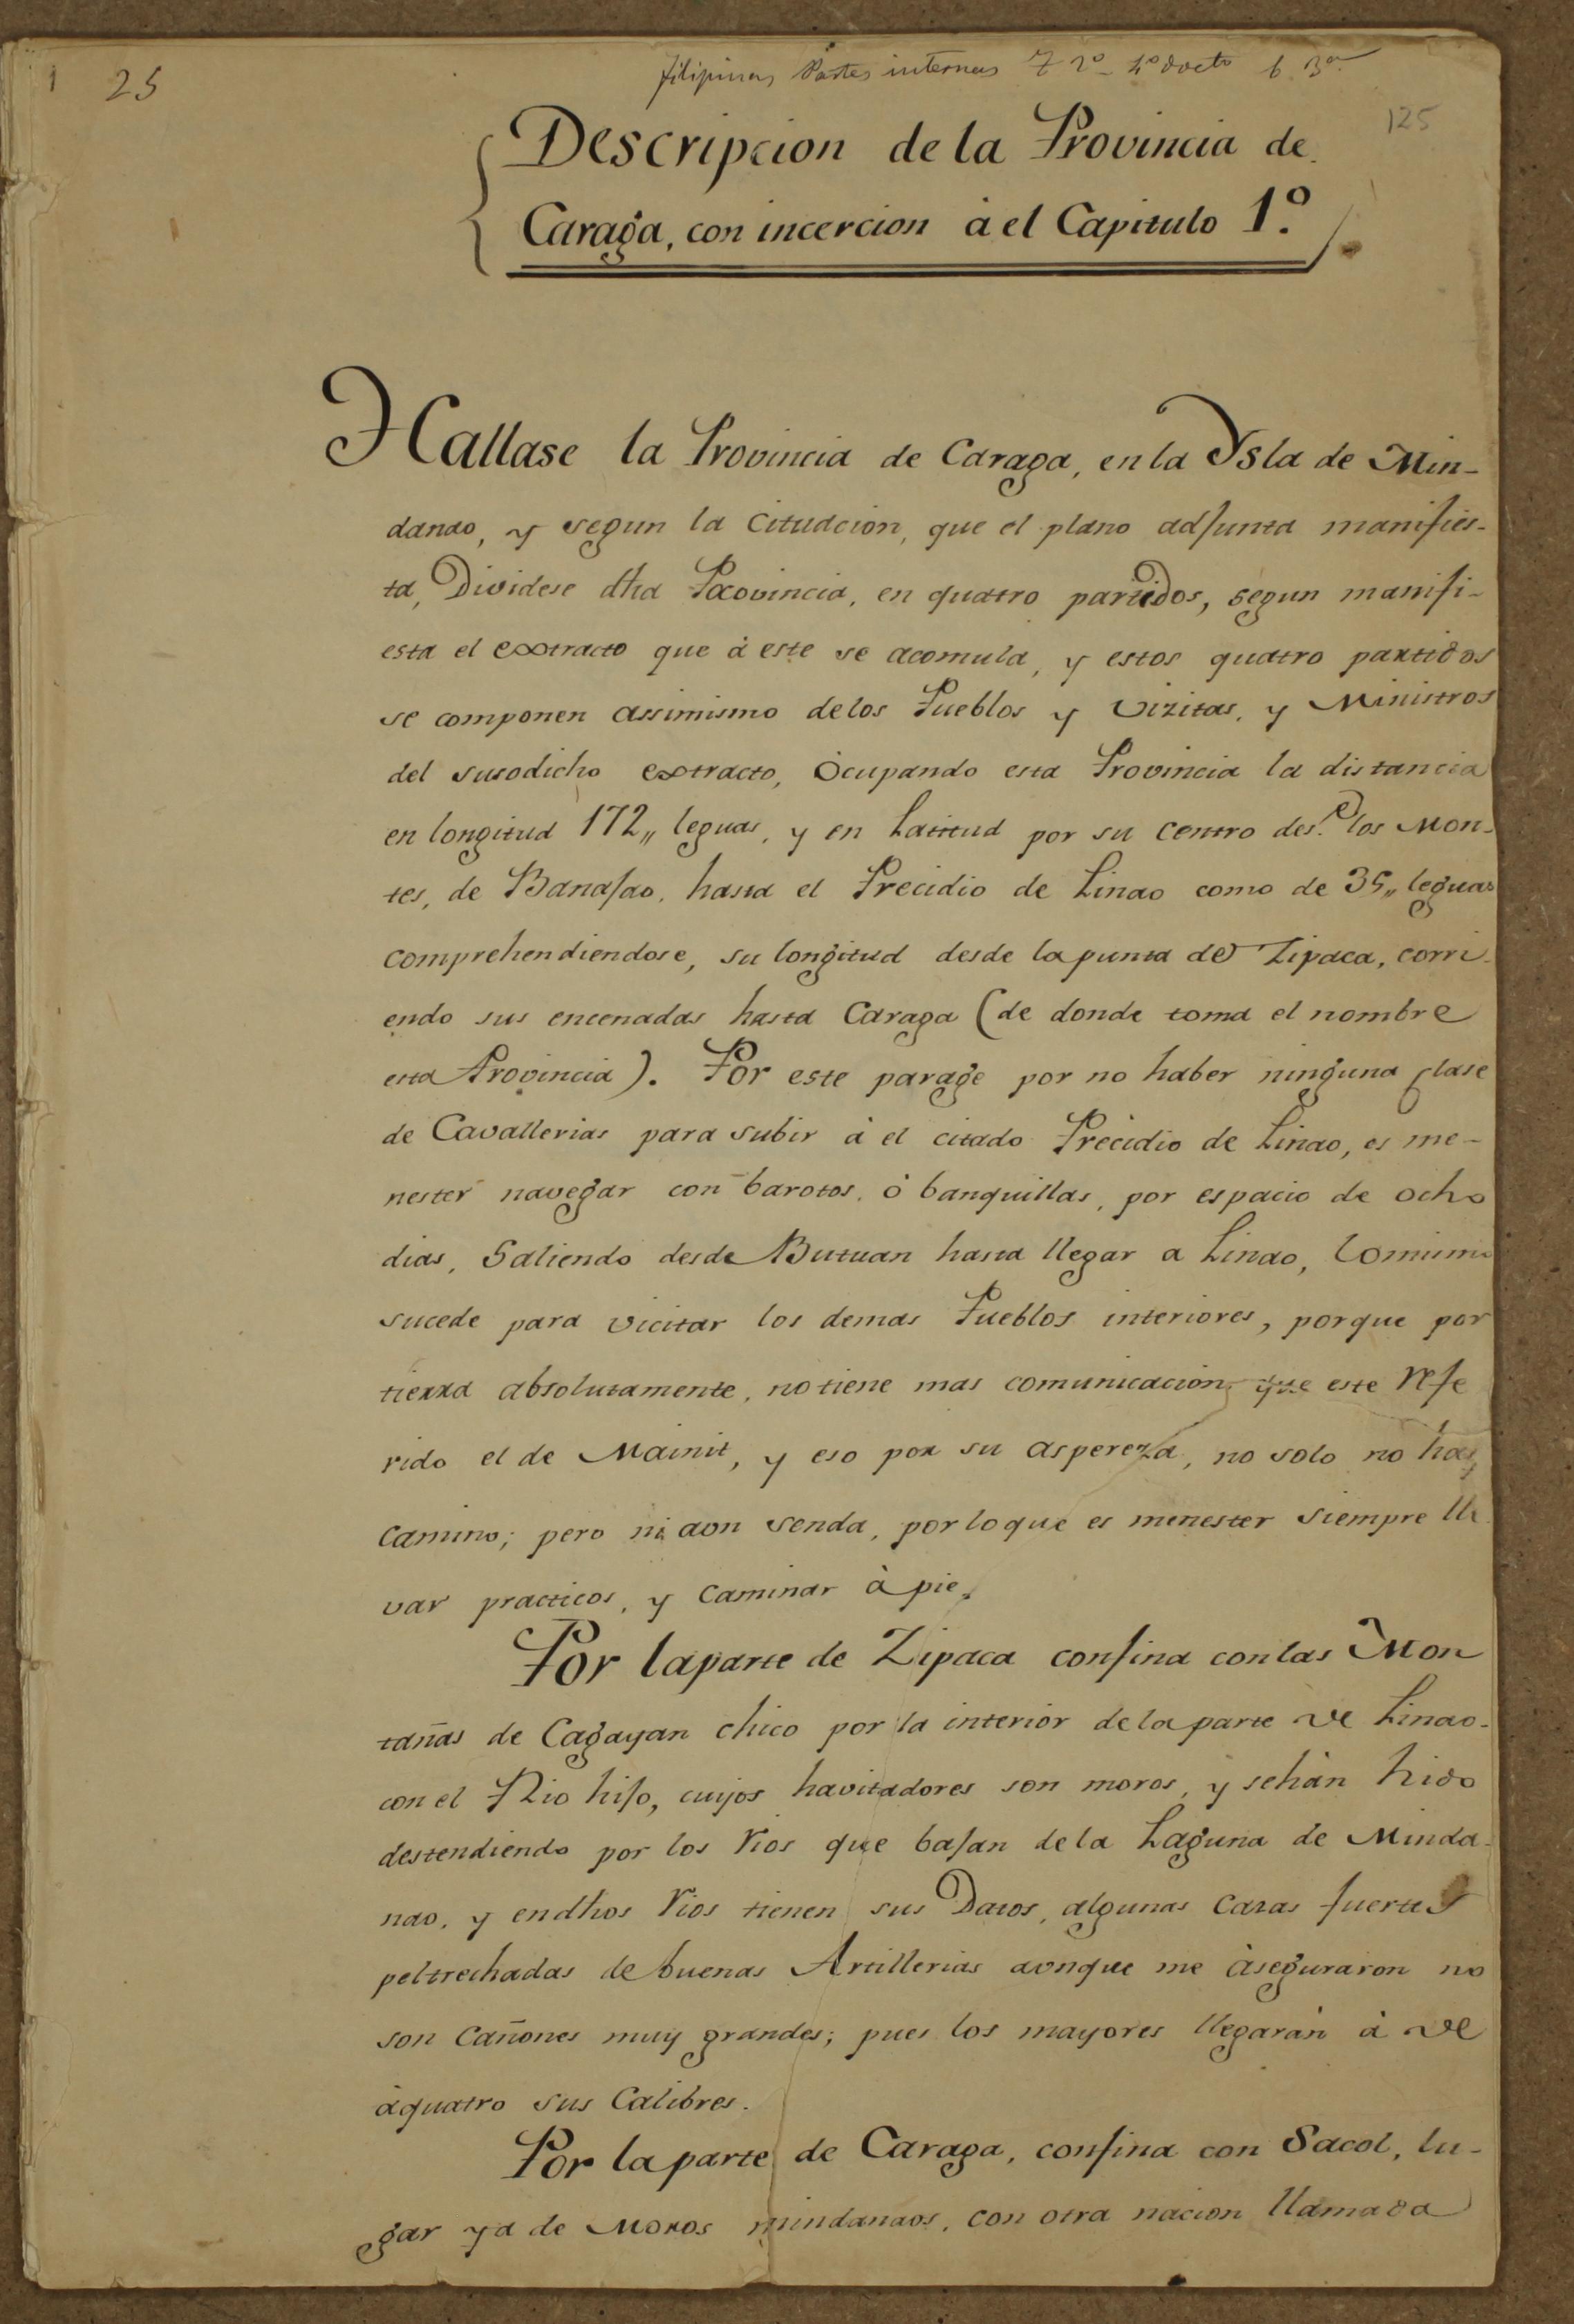 1 25
filipinas Partes internas T 2º 4º docto 6 3ª
125
Descripcion de la Provincia de
Caraga, con incercion à el Capitulo 1.º
Hallase la Provincia de Caraga, en la Ysla de Min-
danao, y segun la Cituacion, que el plano adjunta manifies-
ta, Dividese dha Provincia, en quatro partidos, segun manifi-
esta el extracto que à este se acomula, y estos quatro partidos
se componen assimismo de los Pueblos y Vizitas, y Ministros
del susodicho extracto, Ócupando esta Provincia la distancia
en longitud 172,, leguas, y en Latitud por su Centro des.e los Mon-
tes, de Banajao, hasta el Precidio de Linao como de 35,, leguas
comprehendiendose, su longitud desde la punta de Zipaca, corri-
endo sus encenadas hasta Caraga (de donde toma el nombre
esta Provincia). Por este parage por no haber ninguna Clase
de Cavallerias para subir à el citado Precidio de Linao, es me-
nester navegar con barotos, ò banquillas, por espacio de ocho
dias, Saliendo desde Butuan hasta llegar a Linao, Lomismo
sucede para vicitar los demas Pueblos interiores, porque por
tierra absolutamente, no tiene mas comunicacion, que este refe
rido el de Mainit, y eso por su aspereza, no solo no hay
Camino; pero ni aon senda, por lo que es menester siempre lle
var practicos, y Caminar à pie.
Por la parte de Zipaca confina con las Mon
tañas de Cagayan chico por la interior de la parte de Linao-
con el Rio hijo, cuyos havitadores son moros, y sehàn hido
destendiendo por los rios que bajan de la Laguna de Minda-
nao, y en dhos rios tienen sus Datos, algunas Cazas fuertes
peltrechadas de buenas Artillerias aonque me àseguraron no
son Cañones muy grandes; pues los mayores llegaràn à de
àquatro sus Calibres.
Por la parte de Caraga, confina con Sacol, lu-
gar ya de Moros mindanaos, con otra nacion llamada